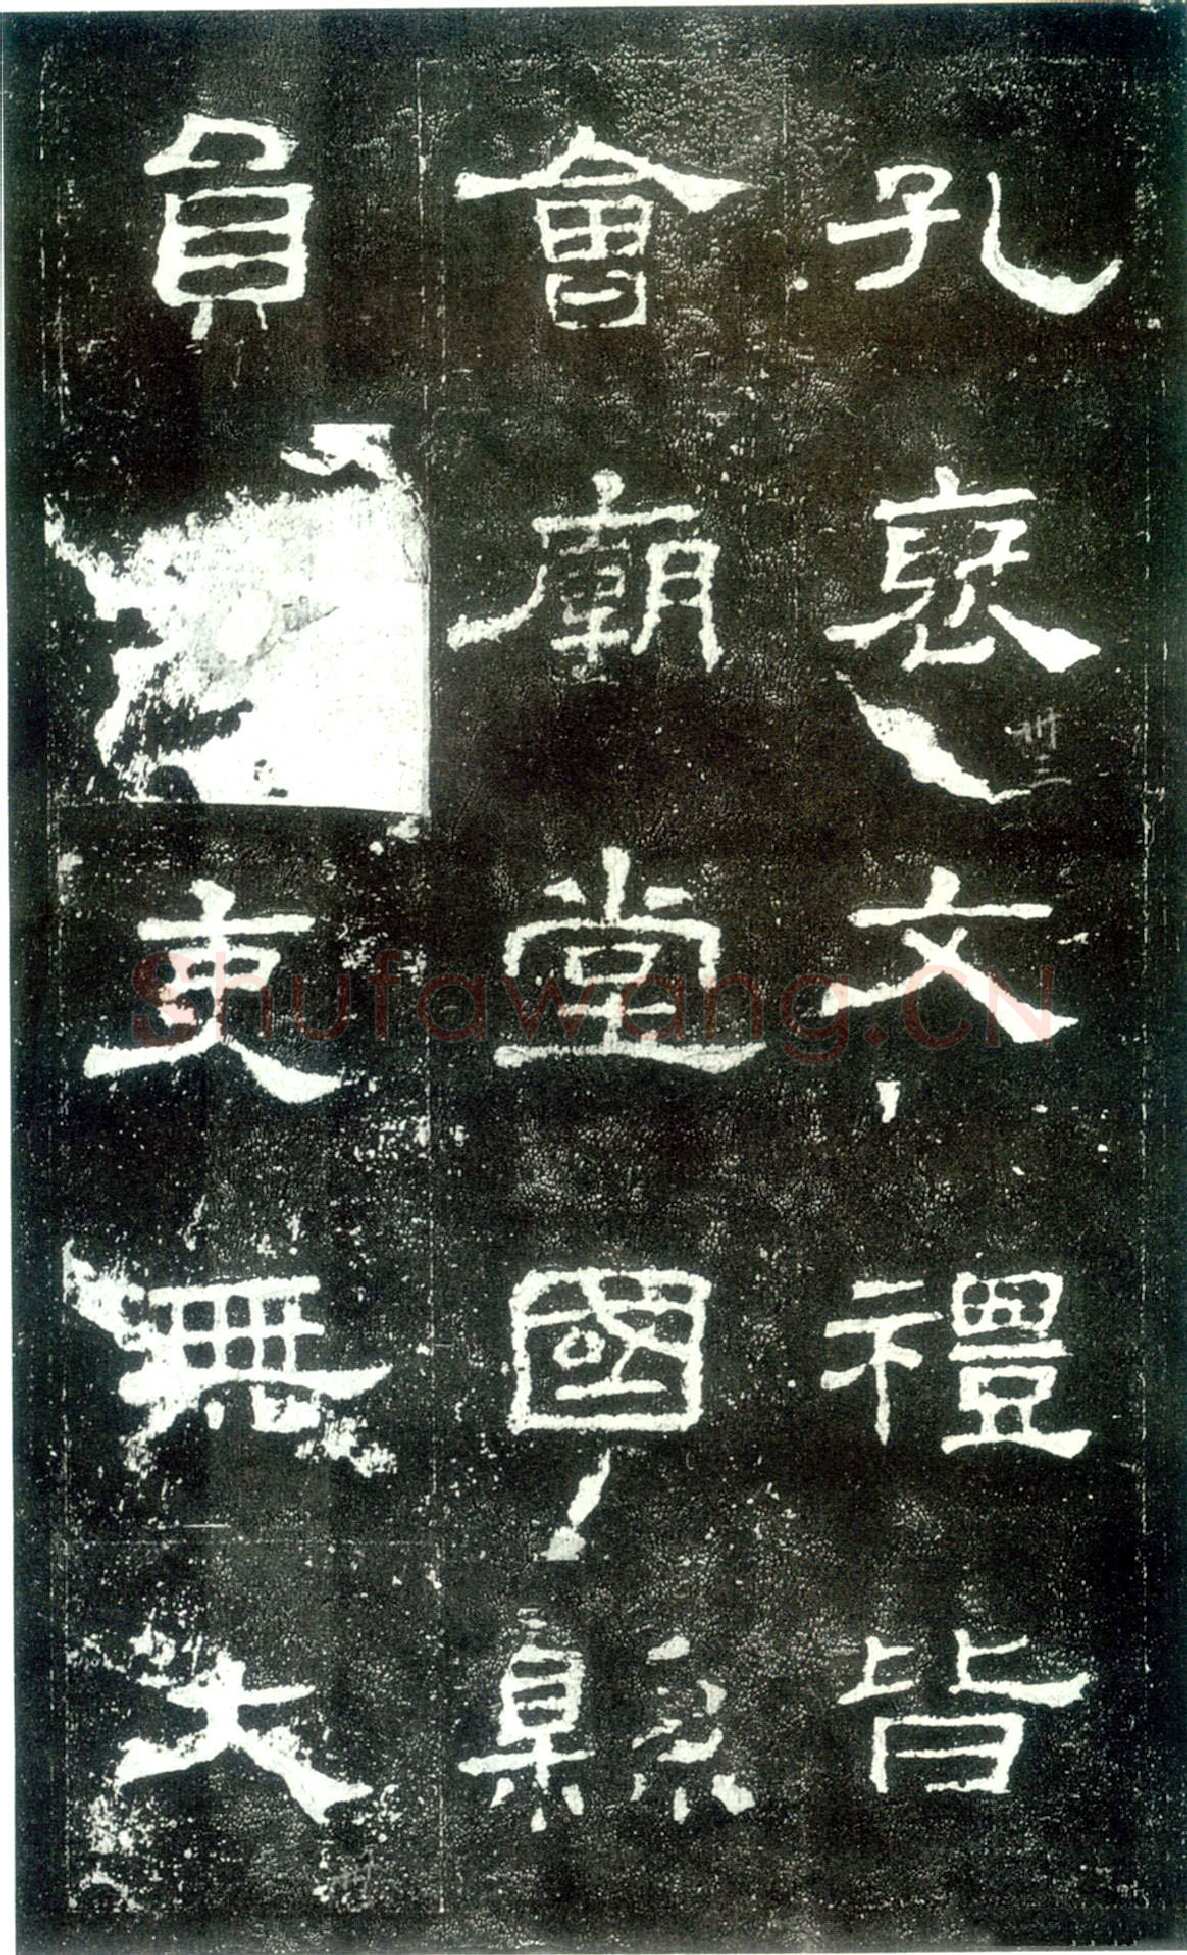 孔褒文禮皆
會廟堂國縣
員吏無大
卅三
Shufawang.CN